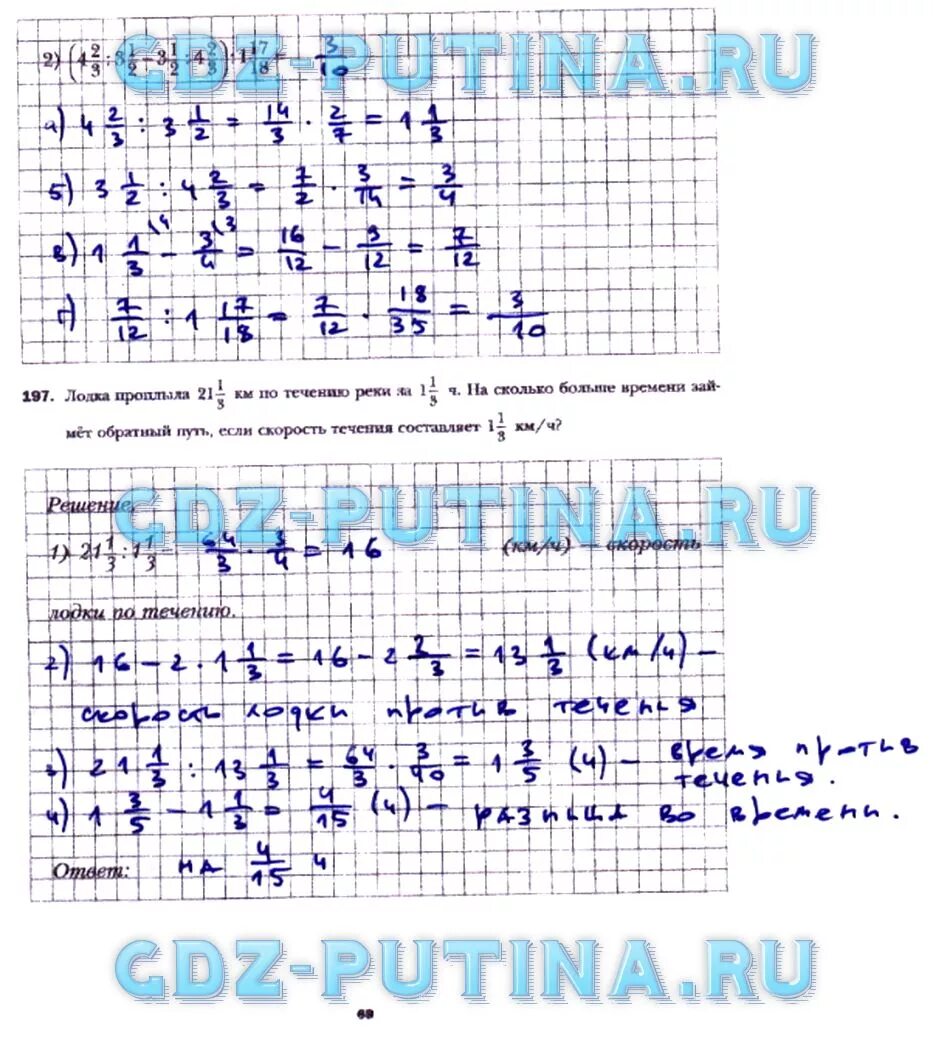 2) (4 2/3 : 3 1/2 − 3 1/2 : 4 2/3) : 1 17/18 = 3/10
GDZ-PUTINA.RU
а) 4 2/3 : 3 1/2 = 14/3 · 2/7 = 1 1/3
б) 3 1/2 : 4 2/3 = 7/2 · 3/14 = 3/4
в) 1 1/3 \4 − 3/4 \3 = 16/12 − 9/12 = 7/12
г) 7/12 : 1 17/18 = 7/12 · 18/35 = 3/10
197. Лодка проплыла 21 1/3 км по течению реки за 1 1/3 ч. На сколько больше времени зай-
мёт обратный путь, если скорость течения составляет 1 1/3 км/ч?
Решение.
GDZ-PUTINA.RU
1) 21 1/3 : 1 1/3 = 64/3 · 3/4 = 16 (км/ч) — скорость
лодки по течению.
2) 16 − 2 · 1 1/3 = 16 − 2 2/3 = 13 1/3 (км/ч) −
скорость лодки против теченья
3) 21 1/3 : 13 1/3 = 64/3 · 3/40 = 1 3/5 (ч) − время против
теченья.
4) 1 3/5 − 1 1/3 = 4/15 (ч) − разница во времени.
Ответ: на 4/15 ч
GDZ-PUTINA.RU
63